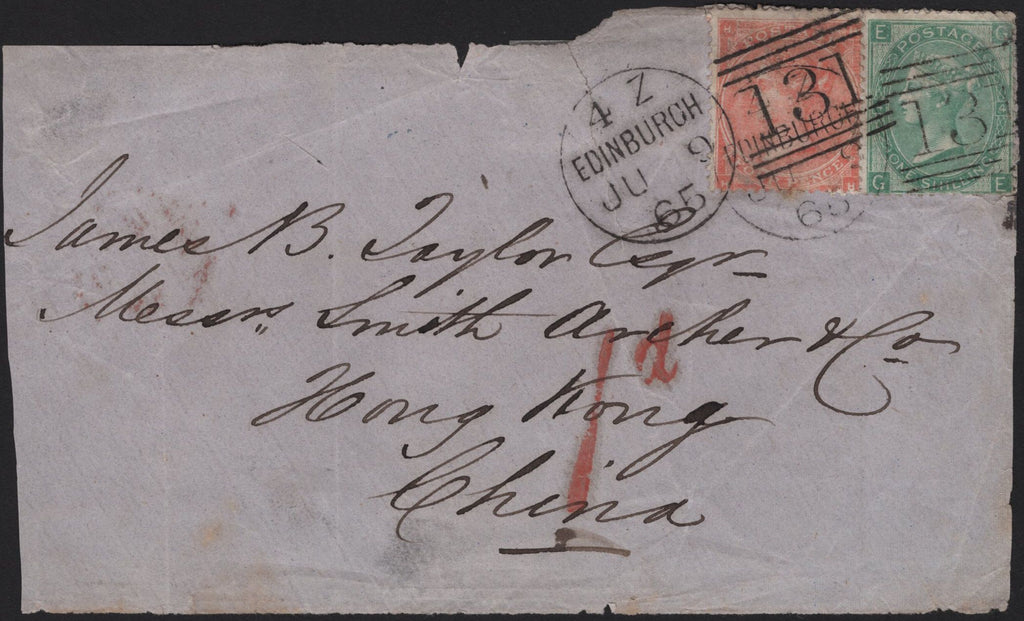 4 Z
EDINBURGH
JU 9
65
H POSTAGE
131
EDINBURGH
JU
65
PENCE
H
E POSTAGE G
13
G ONE SHILLING E
James B. Taylor Esqr
Messrs Smith Archer & Co
1d
Hong Kong
China